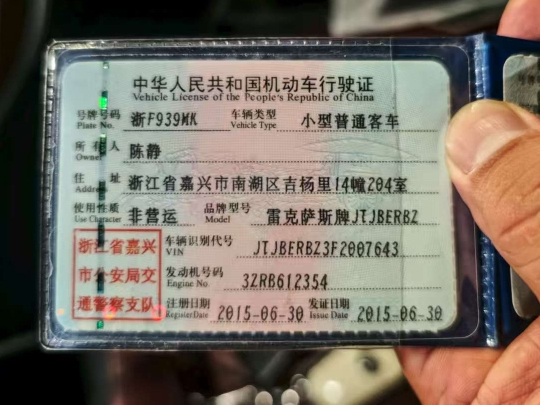 中华人民共和国机动车行驶证
Vehicle License of the People's Republic of China
号牌号码 浙F939WK 车辆类型 小型普通客车
Plate No. Vehicle Type
所有人 陈静
Owner
住址 浙江省嘉兴市南湖区吉杨里14幢204室
Address
使用性质 非营运 品牌型号 雷克萨斯牌JTJBERBZ
Use Character Model
浙江省嘉兴 车辆识别代号 JTJBERBZ3F2007643
VIN
市公安局交 发动机号码 3ZRB612354
Engine No.
通警察支队 注册日期 2015-06-30 发证日期 2015-06-30
Register Date Issue Date